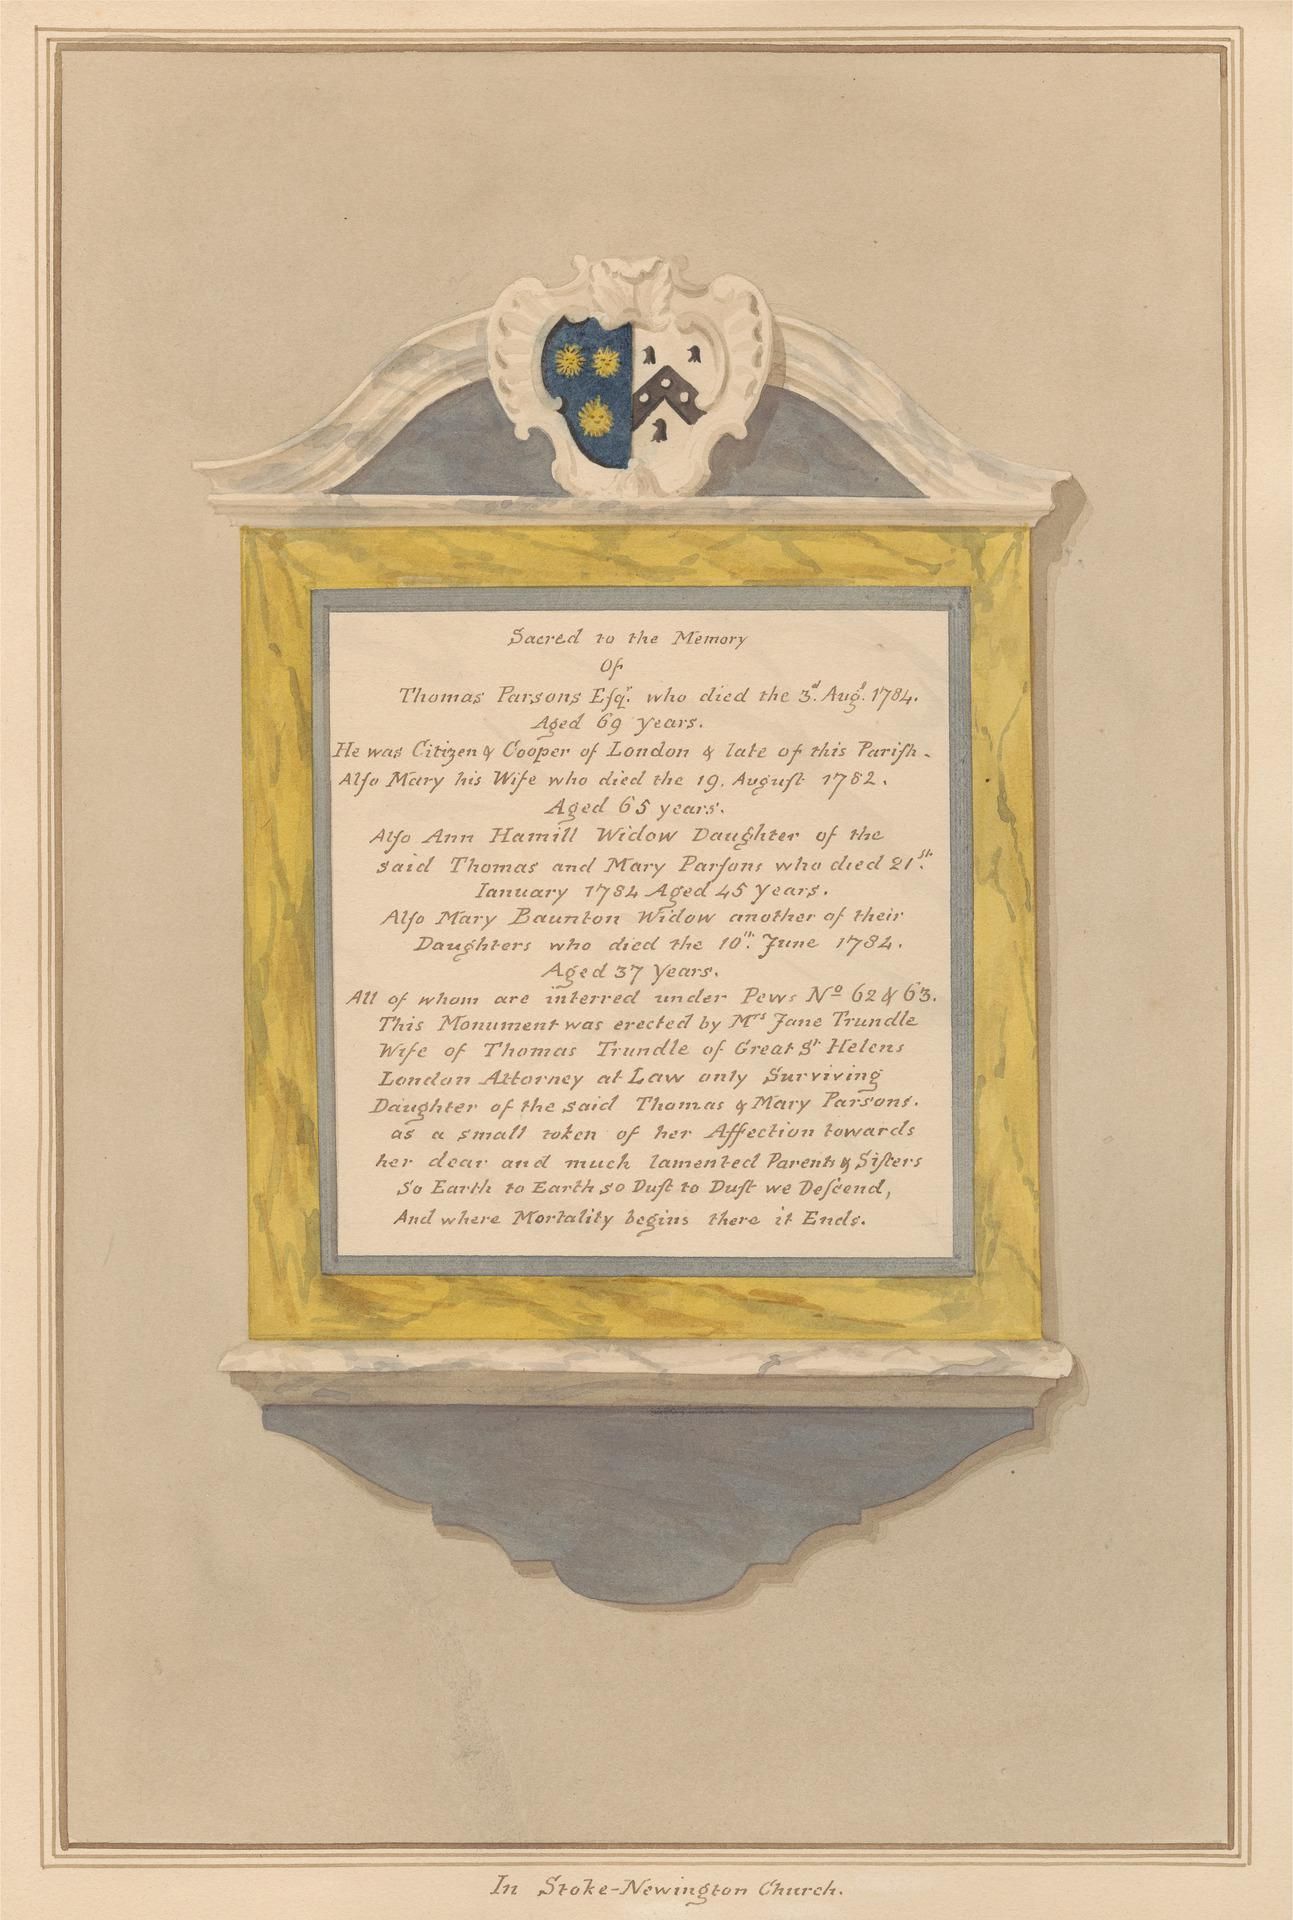 Sacred to the Memory
Of
Thomas Parsons Eſqr. who died the 3d. Augt. 1784.
Aged 69 years.
He was Citizen & Cooper of London & late of this Pariſh.
Alſo Mary his Wife who died the 19. Auguſt 1782.
Aged 65 years.
Alſo Ann Hamill Widow Daughter of the
said Thomas and Mary Parſons who died 21st.
Ianuary 1784 Aged 45 years.
Alſo Mary Baunton Widow another of their
Daughters who died the 10th. June 1784.
Aged 37 years.
All of whom are interred under Pews No 62 & 63.
This Monument was erected by Mrs Jane Trundle
Wife of Thomas Trundle of Great St Helens
London Attorney at Law only Surviving
Daughter of the said Thomas & Mary Parsons.
as a small token of her Affection towards
her dear and much lamented Parents & Siſters
So Earth to Earth so Duſt to Duſt we Deſcend,
And where Mortality begins there it Ends.
In Stoke-Newington Church.